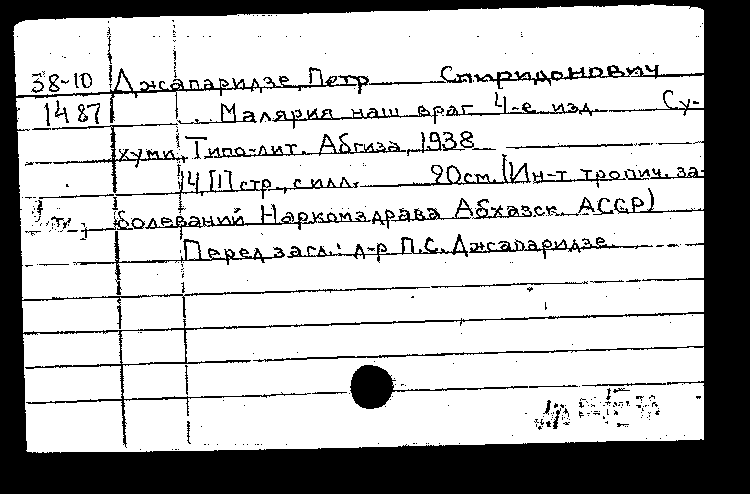 38-10 Джапаридзе, Петр Спиридонович
1487 . Малярия наш враг 4-е изд. Су-
хуми, Типо-лит. Абгиза, 1938
14, [1] стр., с илл. 20см. (Ин-т тропич. за-
болеваний Наркомздрава Абхазск. АССР)
Перед загл.: д-р П.С. Джапаридзе.